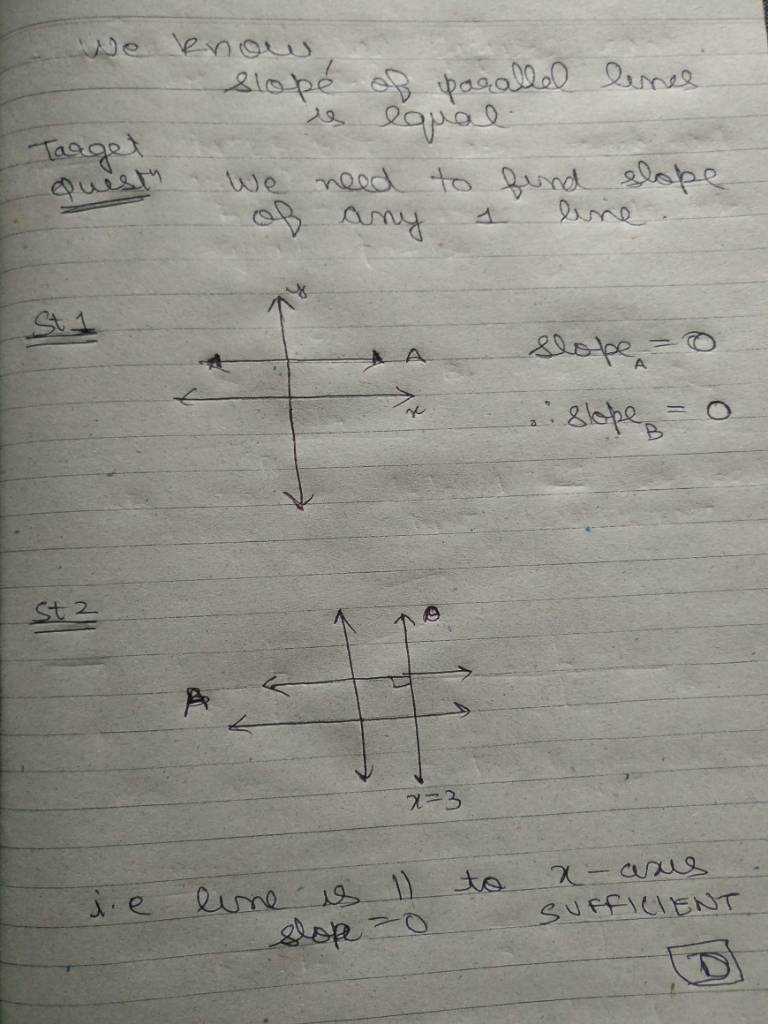 We know,
slope of parallel lines
is equal.
Target
Questⁿ We need to find slope
of any 1 line.
St 1
y
A
x
slope_A = 0
∴ slope_B = 0
St 2
B
A
x=3
i.e line is || to x-axis
slope = 0 SUFFICIENT
D